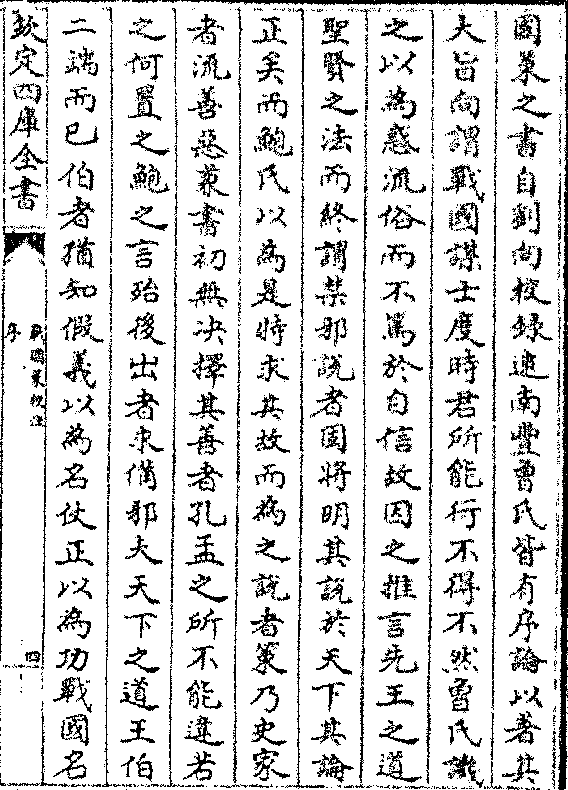 國策之書自劉向校録逮南豐曾氏皆有序論以著其
大旨向謂戰國謀士度時君所能行不得不然曾氏譏
之以為惑流俗而不篤於自信故因之推言先王之道
聖賢之法而終謂禁邪說者固將明其說於天下其論
正矣而鮑氏以為是特求其故而為之說者策乃史家
者流善惡兼書初無决擇其善者孔孟之所不能違若
之何置之鮑之言殆後出者求備邪夫天下之道王伯
二端而已伯者猶知假義以為名仗正以為功戰國名
欽定四庫全書
戰國策校注
序
四